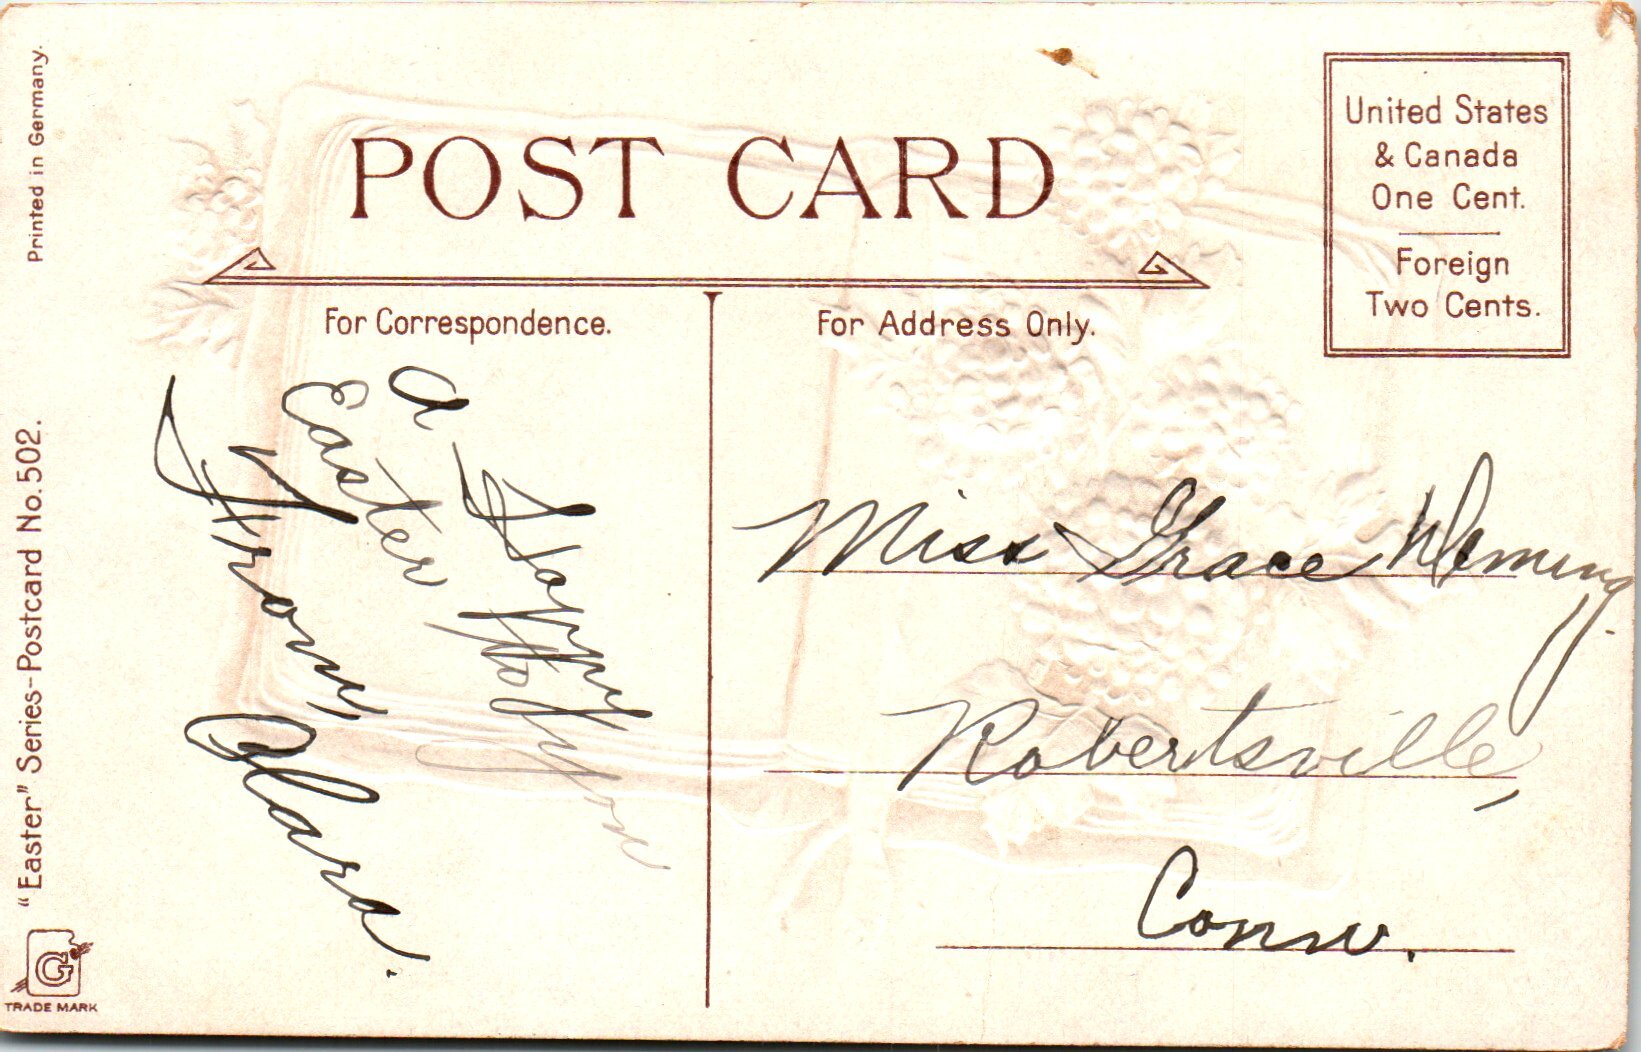 POST CARD
United States
& Canada
One Cent.
Foreign
Two Cents.
For Correspondence.
For Address Only.
A Happy
Easter To You
From
Clara.
Miss Grace Deming.
Robertsville,
Conn.
Printed in Germany.
"Easter" Series-Postcard No. 502.
G
TRADE MARK